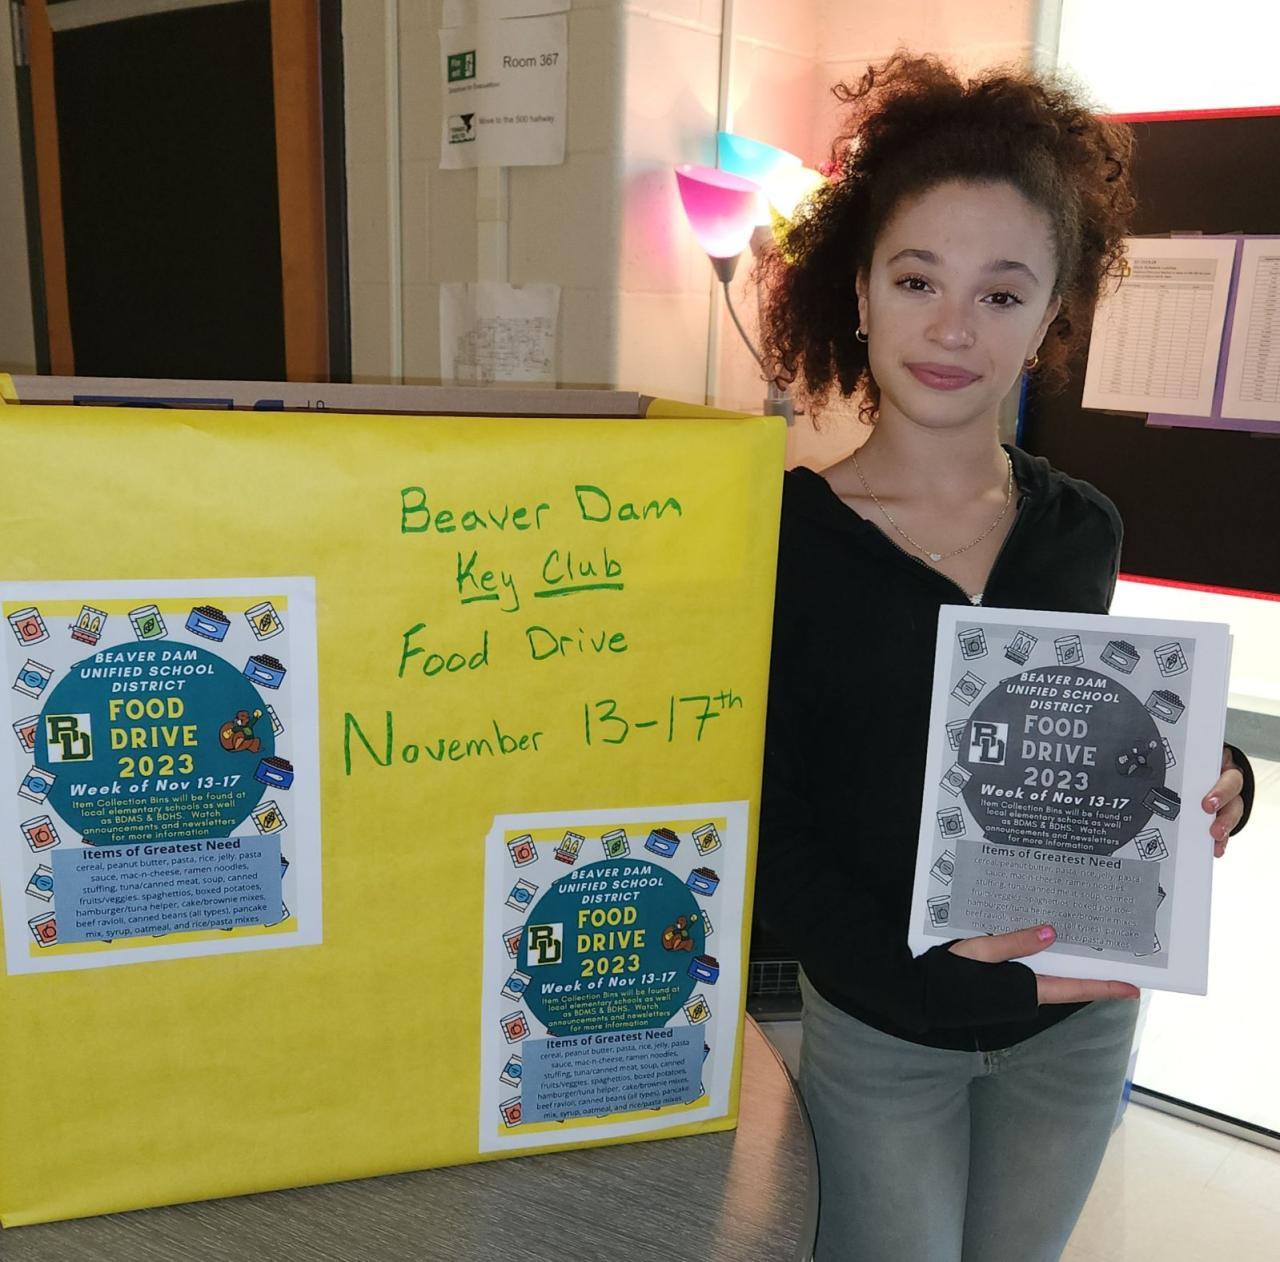 Room 367
Move to the 500 hallway
Beaver Dam
Key Club
Food Drive
November 13-17th
BEAVER DAM
UNIFIED SCHOOL
DISTRICT
FOOD
DRIVE
2023
BD
Week of Nov 13-17
Item Collection Bins will be found at
local elementary schools as well
as BDMS & BDHS. Watch
announcements and newsletters
for more information
Items of Greatest Need
cereal, peanut butter, pasta, rice, jelly, pasta
sauce, mac-n-cheese, ramen noodles,
stuffing, tuna/canned meat, soup, canned
fruits/veggies, spaghettios, boxed potatoes,
hamburger/tuna helper, cake/brownie mixes,
beef ravioli, canned beans (all types), pancake
mix, syrup, oatmeal, and rice/pasta mixes
BEAVER DAM
UNIFIED SCHOOL
DISTRICT
FOOD
DRIVE
2023
BD
Week of Nov 13-17
Item Collection Bins will be found at
local elementary schools as well
as BDMS & BDHS. Watch
announcements and newsletters
for more information
Items of Greatest Need
cereal, peanut butter, pasta, rice, jelly, pasta
sauce, mac-n-cheese, ramen noodles,
stuffing, tuna/canned meat, soup, canned
fruits/veggies, spaghettios, boxed potatoes,
hamburger/tuna helper, cake/brownie mixes,
beef ravioli, canned beans (all types), pancake
mix, syrup, oatmeal, and rice/pasta mixes
BEAVER DAM
UNIFIED SCHOOL
DISTRICT
FOOD
DRIVE
2023
BD
Week of Nov 13-17
Item Collection Bins will be found at
local elementary schools as well
as BDMS & BDHS. Watch
announcements and newsletters
for more information
Items of Greatest Need
cereal, peanut butter, pasta, rice, jelly, pasta
sauce, mac-n-cheese, ramen noodles,
stuffing, tuna/canned meat, soup, canned
veggies, spaghettios, boxed potatoes,
hamburger/tuna helper, cake/brownie mixes,
beef ravioli, canned beans (all types), pancake
mix, syrup, and rice/pasta mixes